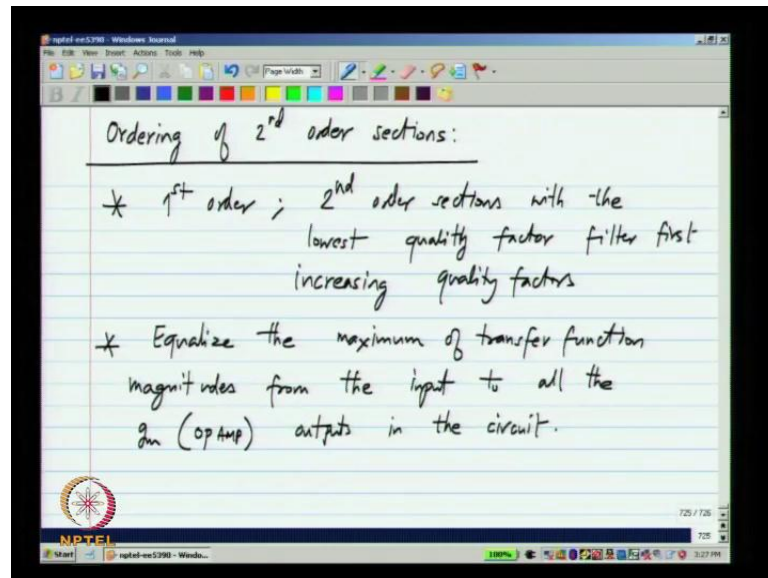 nptel-ee5390 - Windows Journal
File Edit View Insert Actions Tools Help
Page Width
B I
Ordering of 2nd order sections:
* 1st order ; 2nd order sections with the
lowest quality factor filter first
increasing quality factors
* Equalize the maximum of transfer function
magnitudes from the input to all the
gm (OPAMP) outputs in the circuit.
725 / 726
725
NPTEL
Start nptel-ee5390 - Windo... 100% 3:27 PM